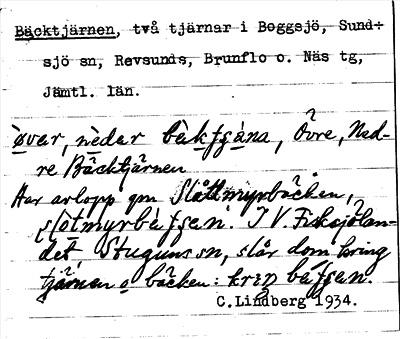 Bäcktjärnen, två tjärnar i Boggsjö, Sund-
sjö sn, Revsunds, Brunflo o. Näs tg,
Jämtl. län.
över, nèder bèkfgäna, Övre, Ned-
re Bäcktjärnen
Har avlopp gm Slåttmyrbäcken,
slòtmyrbèfsen. I V. Fisksjölan-
det Stuguns sn, slår dom kring
tjärnen o bäcken: kriŋ bèfsen.
C.Lindberg 1934.